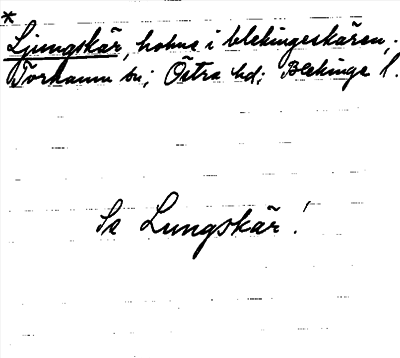 *
Ljungskär, holme i blekingeskären,
Torhamn sn; Östra hd; Blekinge l.
Se Lungskär!